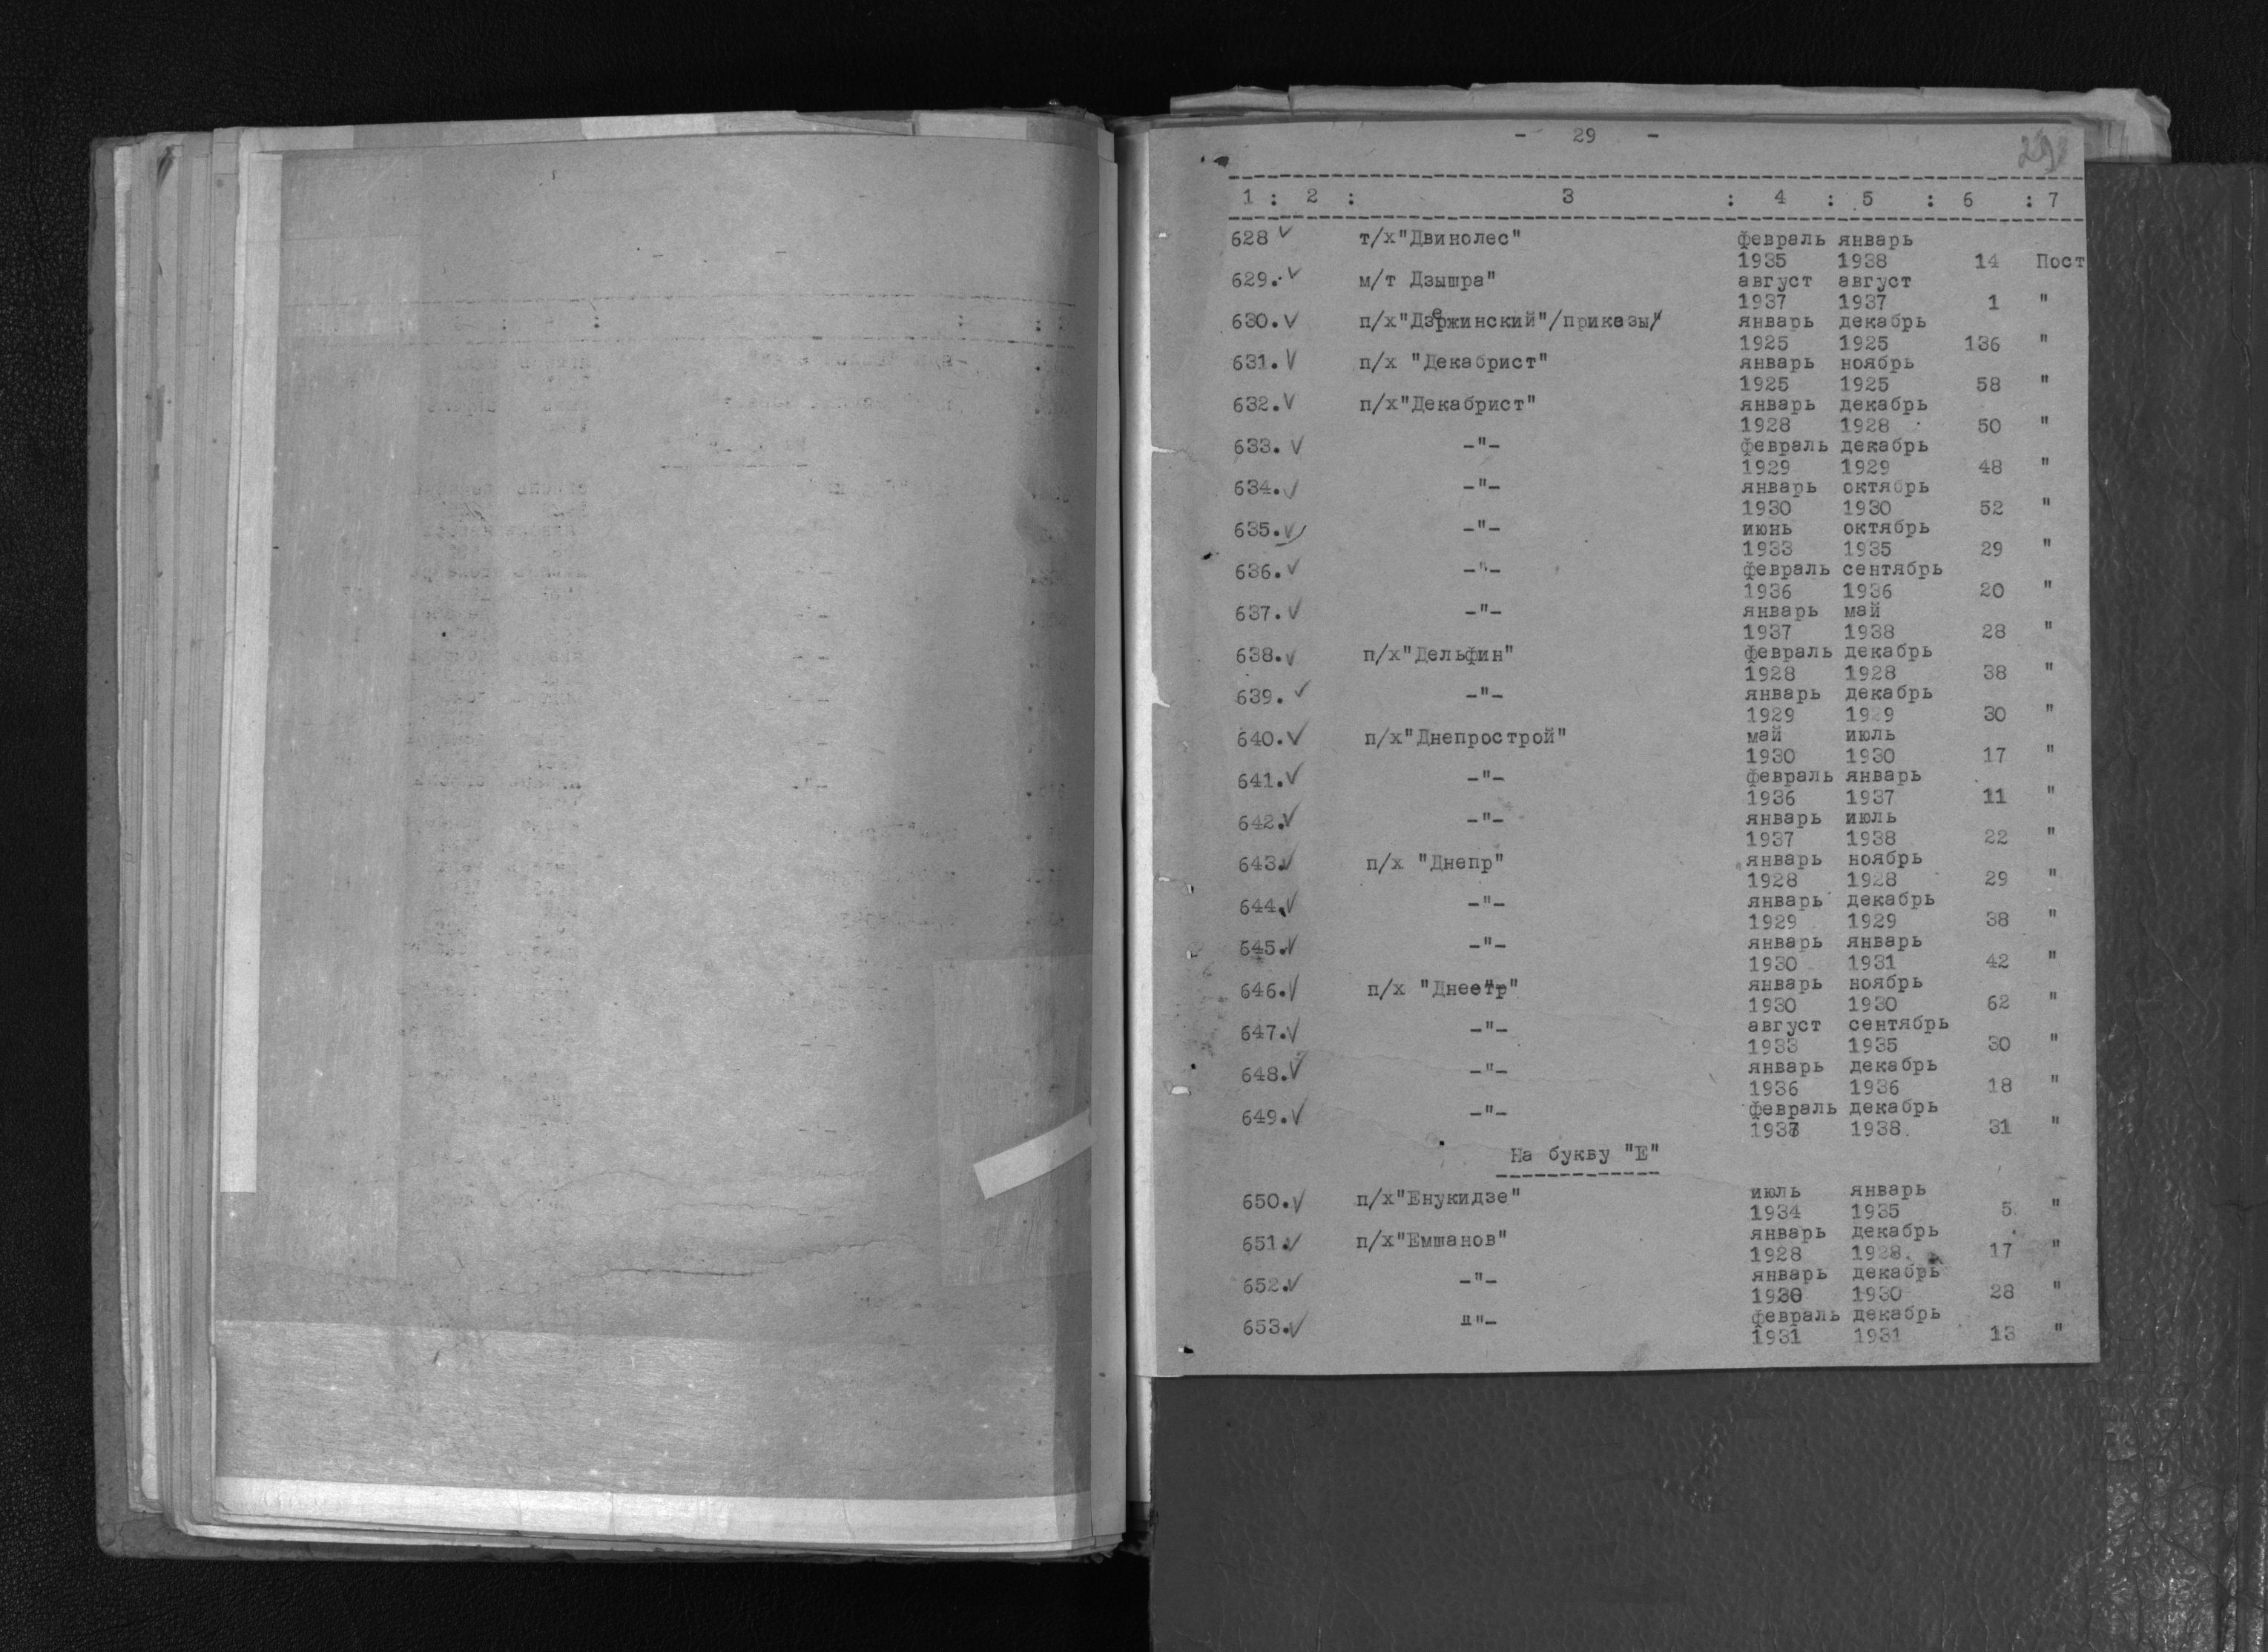 - 29 -
29
1 : 2 : 3 : 4 : 5 : 6 : 7
628 ✓ т/х"Двинолес" февраль январь
1935 1938 14 Пост
629. ✓ м/т Дзышра" август август
1937 1937 1 "
630. ✓ п/х"Дзержинский"/приказы/ январь декабрь
1925 1925 136 "
631. ✓ п/х "Декабрист" январь ноябрь
1925 1925 58 "
632. ✓ п/х"Декабрист" январь декабрь
1928 1928 50 "
633. ✓ -"- февраль декабрь
1929 1929 48 "
634. ✓ -"- январь октябрь
1930 1930 52 "
635. ✓ -"- июнь октябрь
1933 1935 29 "
636. ✓ -"- февраль сентябрь
1936 1936 20 "
637. ✓ -"- январь май
1937 1938 28 "
638. ✓ п/х"Дельфин" февраль декабрь
1928 1928 38 "
639. ✓ -"- январь декабрь
1929 1929 30 "
640. ✓ п/х"Днепрострой" май июль
1930 1930 17 "
641. ✓ -"- февраль январь
1936 1937 11 "
642. ✓ -"- январь июль
1937 1938 22 "
643. ✓ п/х "Днепр" январь ноябрь
1928 1928 29 "
644. ✓ -"- январь декабрь
1929 1929 38 "
645. ✓ -"- январь январь
1930 1931 42 "
646. ✓ п/х "Днестр" январь ноябрь
1930 1930 62 "
647. ✓ -"- август сентябрь
1933 1935 30 "
648. ✓ -"- январь декабрь
1936 1936 18 "
649. ✓ -"- февраль декабрь
1937 1938. 31 "
На букву "Е"
650. ✓ п/х"Енукидзе" июль январь
1934 1935 5 "
651. ✓ п/х"Емшанов" январь декабрь
1928 1928. 17 "
652. ✓ -"- январь декабрь
1930 1930 28 "
653. ✓ -"- февраль декабрь
1931 1931 13 "